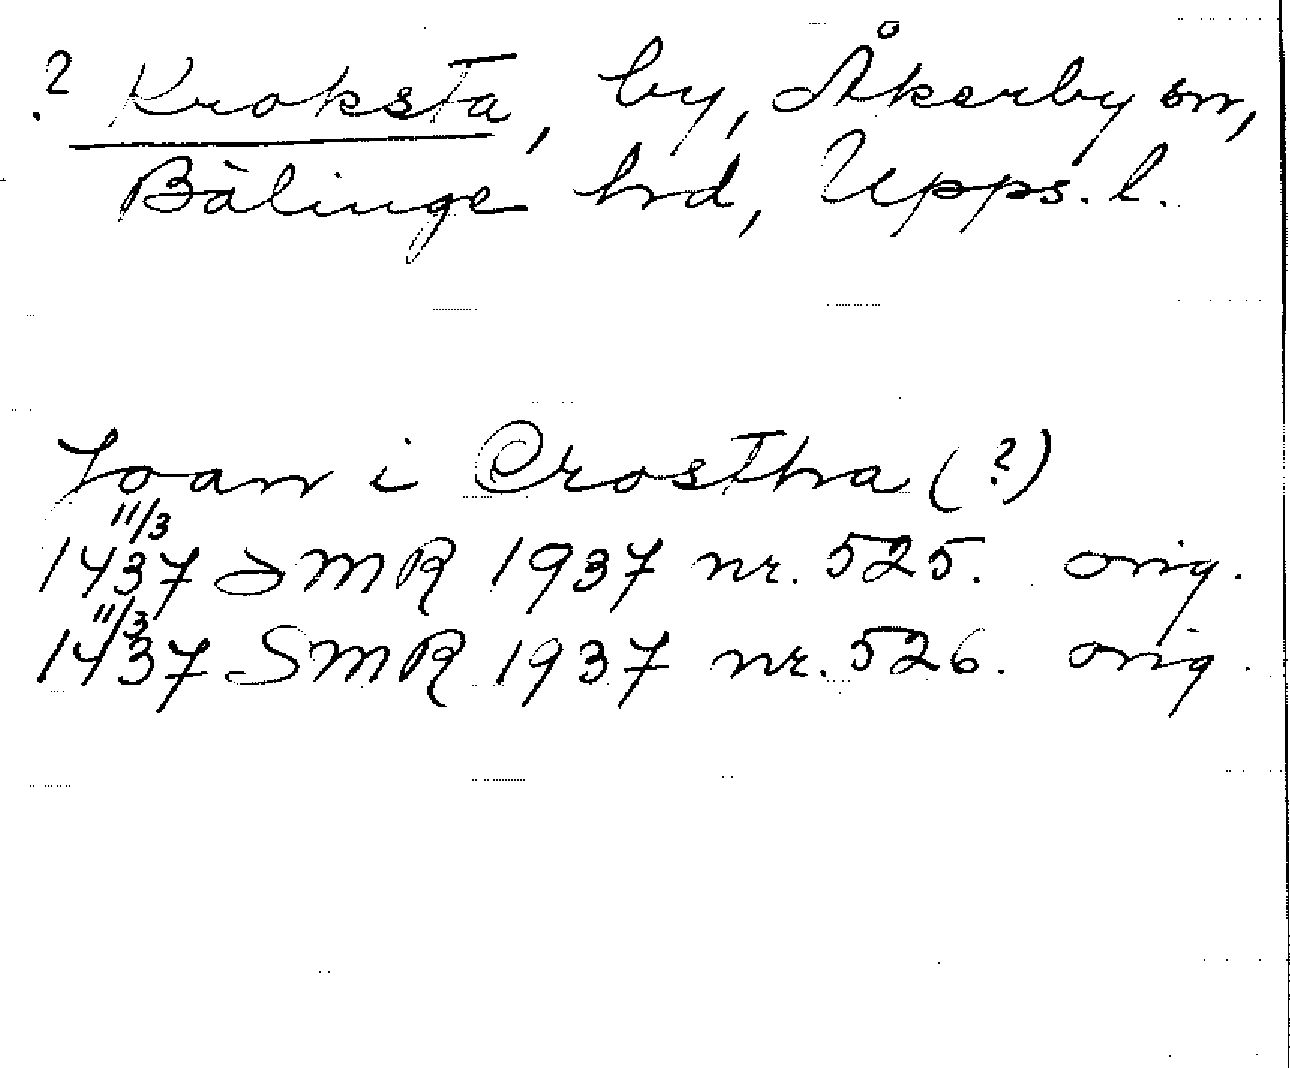 ? Kroksta, by, Åkerby sn,
Bälinge hrd, Upps. l.
Joan i Crostha (?)
11/3
1437 SMR 1937 nr. 525. orig.
11/3
1437 SMR 1937 nr. 526. orig.